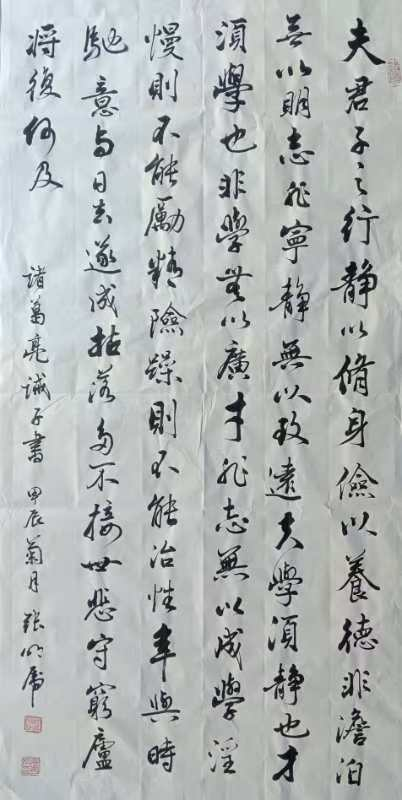 夫君子之行静以脩身儉以養德非澹泊
無以明志非寧静無以致遠夫學須静也才
須學也非學無以廣才非志無以成學淫
慢則不能勵精險躁則不能治性年與時
馳意与日去遂成枯落多不接世悲守窮廬
將復何及
諸葛亮誡子書 甲辰菊月 張